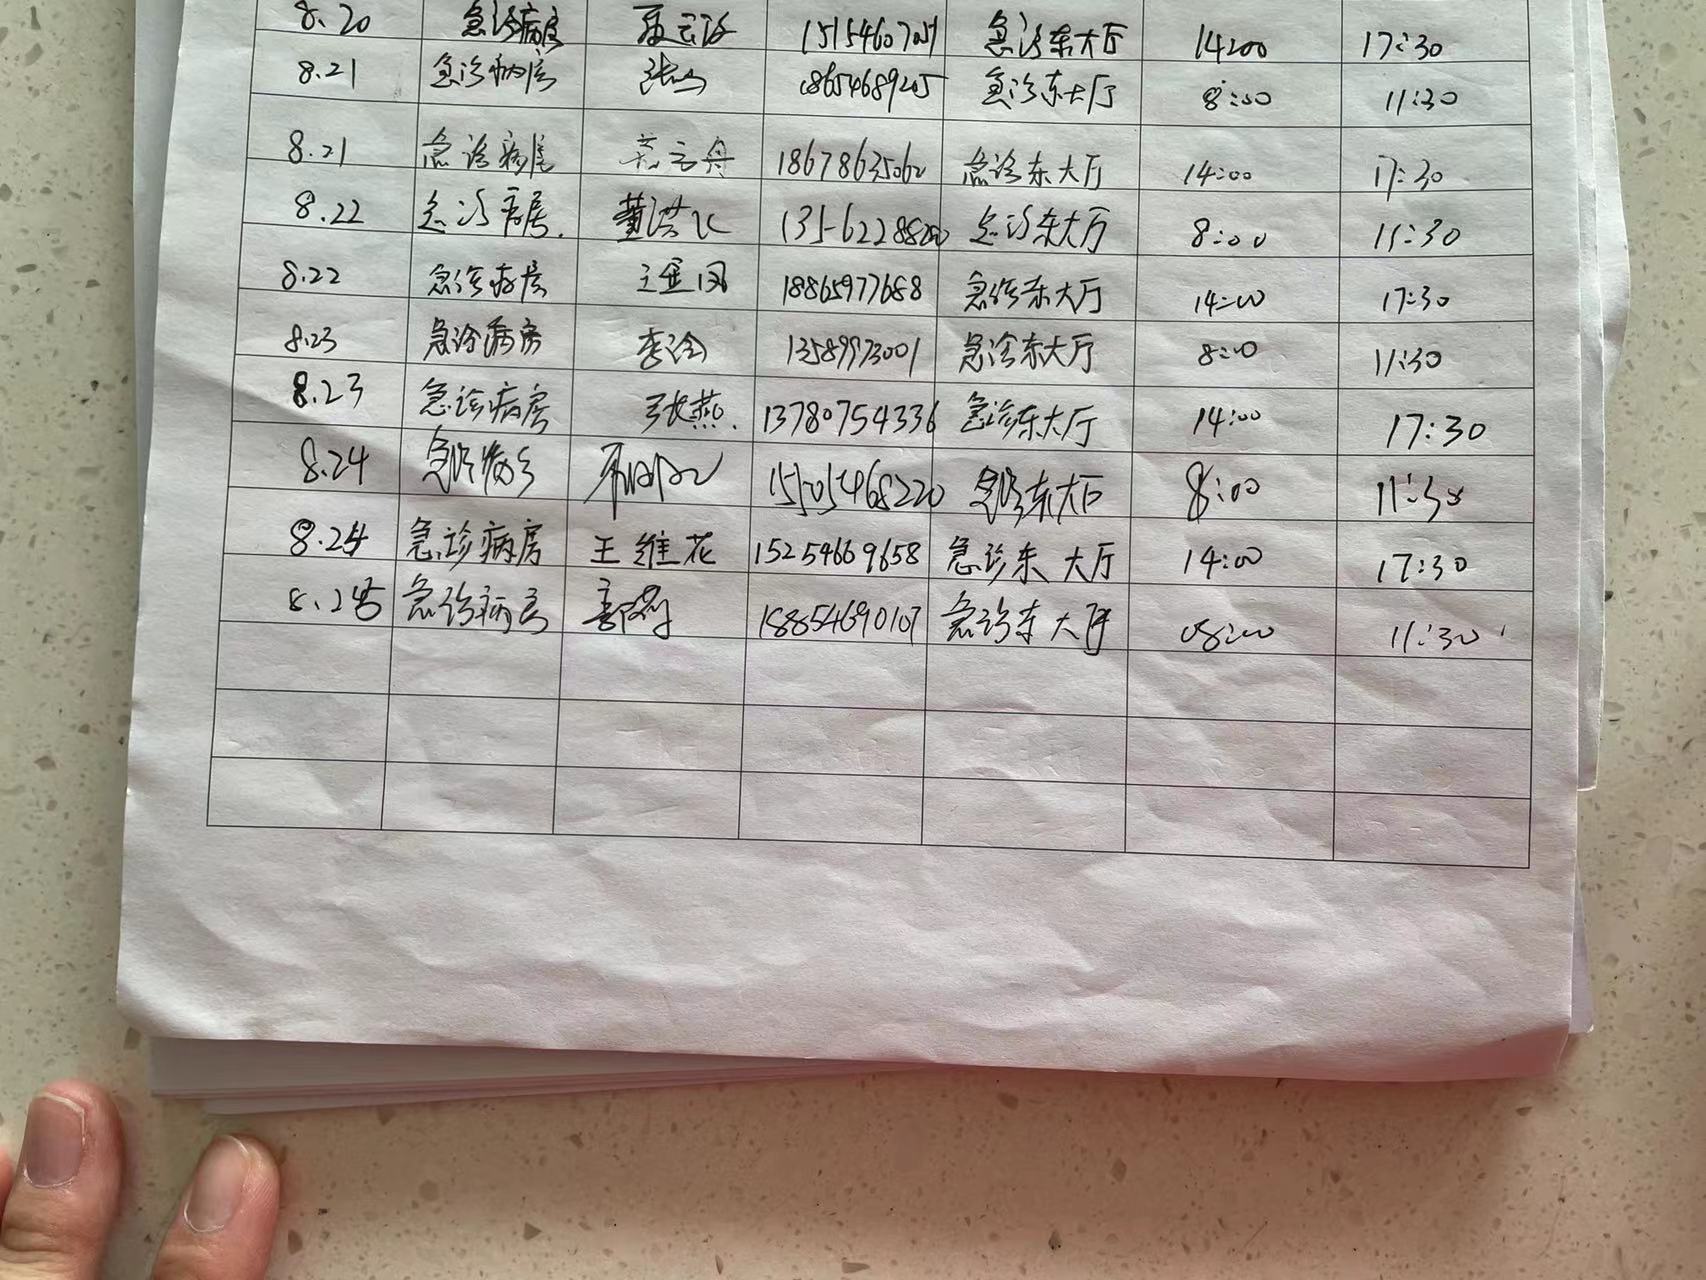 8.20 急诊病房 急诊东大厅 14:00 17:30
8.21 急诊病房 18654689205 急诊东大厅 8:00 11:30
8.21 急诊病房 18678635062 急诊东大厅 14:00 17:30
8.22 急诊病房. 急诊东大厅 8:00 11:30
8.22 急诊病房 18865977688 急诊东大厅 14:00 17:30
8.23 急诊病房 13589973001 急诊东大厅 8:00 11:30
8.23 急诊病房 张燕. 13780754336 急诊东大厅 14:00 17:30
8.24 急诊病房 急诊东大厅 8:00 11:30
8.24 急诊病房 王维花 15254669658 急诊东大厅 14:00 17:30
8.25 急诊病房 18854690107 急诊东大厅 08:00 11:30